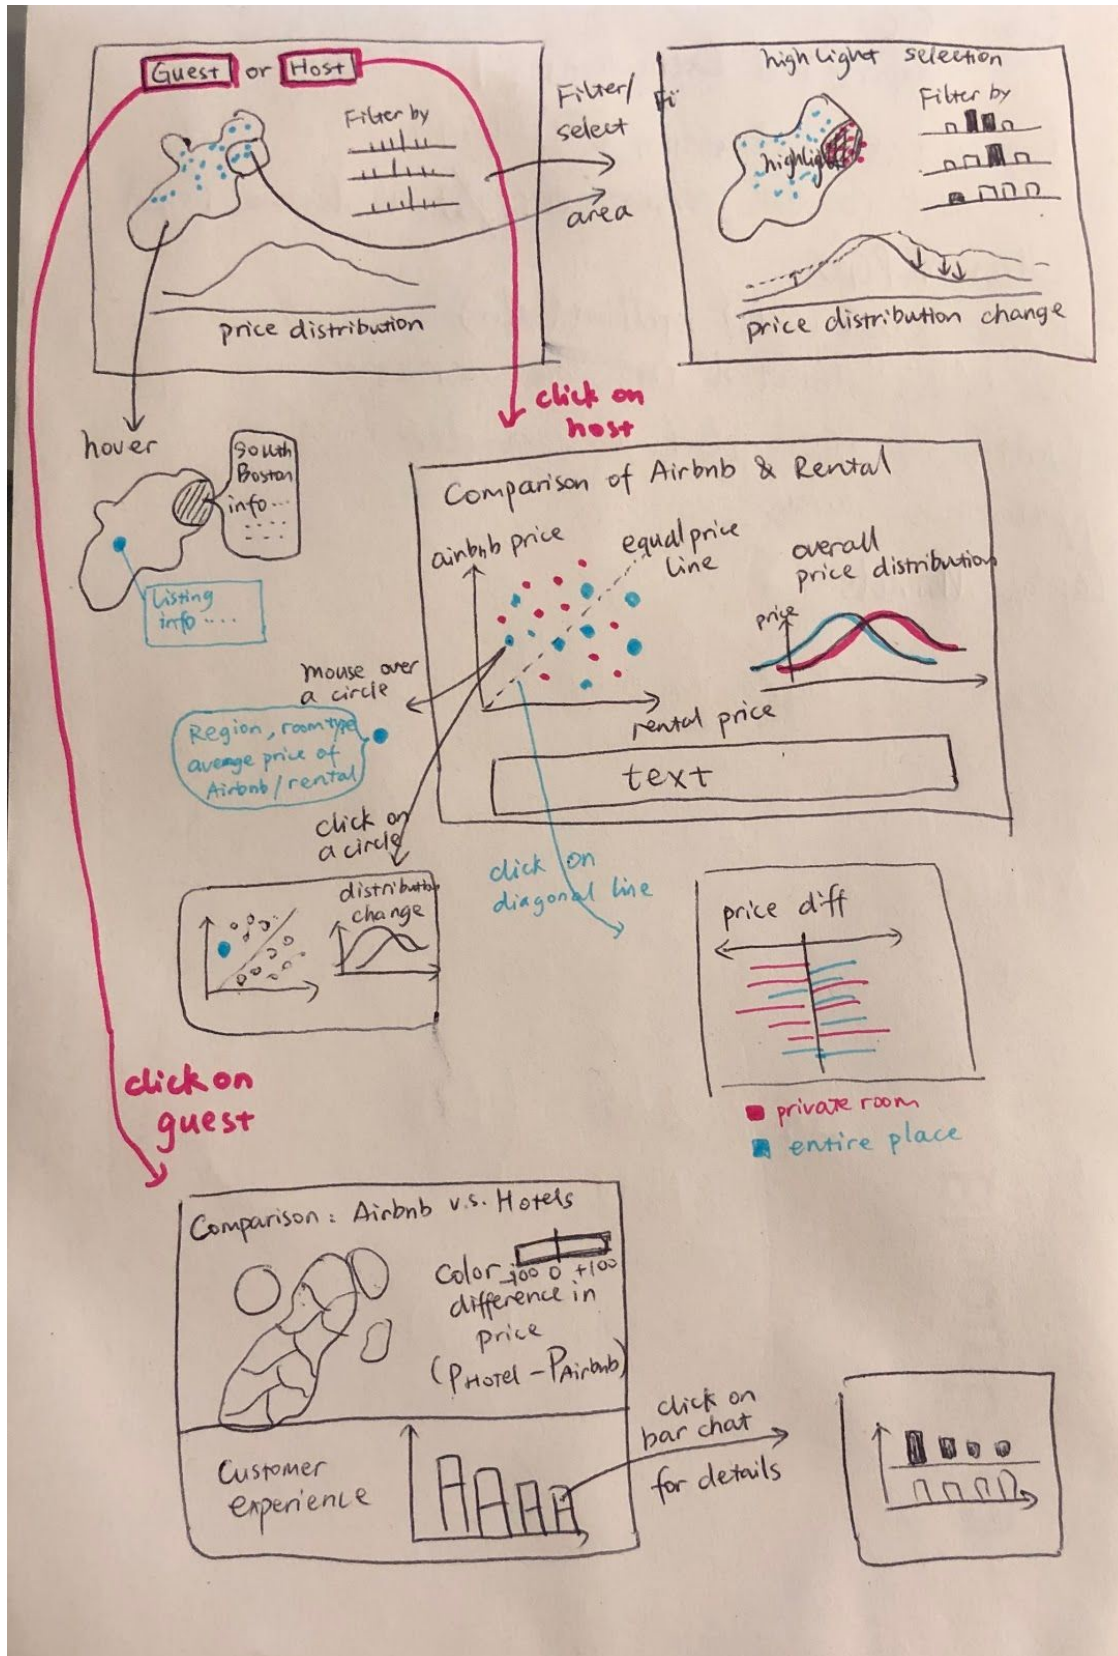 Guest or Host
Filter by
price distribution
Filter/
select
area
Fi
highlight selection
highlight
Filter by
price distribution change
hover
South
Boston
info ...
Listing
info ....
click on
host
Comparison of Airbnb & Rental
airbnb price
equal price
line
rental price
overall
price distribution
price
text
mouse over
a circle
Region, roomtype
average price of
Airbnb/rental
click on
a circle
distribution
change
click on
diagonal line
price diff
private room
entire place
click on
guest
Comparison: Airbnb v.s. Hotels
Color -100 0 +100
difference in
price
(PHotel - PAirbnb)
Customer
experience
click on
bar chat
for details